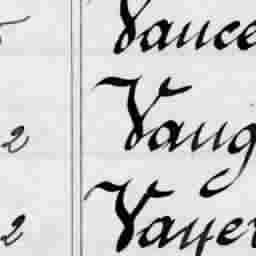 Vance
2 Vaug
2 Vayer